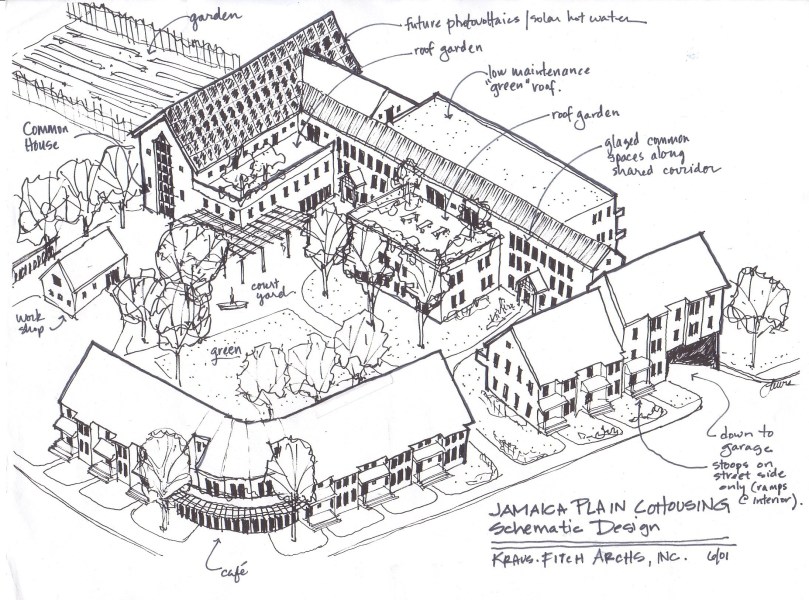 garden
future photovoltaics / solar hot water
roof garden
low maintenance
"green" roof.
roof garden
glazed common
spaces along
shared corridor
Common
House
work
shop
court
yard
green
down to
garage
stoops on
street side
only (ramps
@ interior).
café
JAMAICA PLAIN COHOUSING
Schematic Design
KRAUS-FITCH ARCHS, INC. 6/01